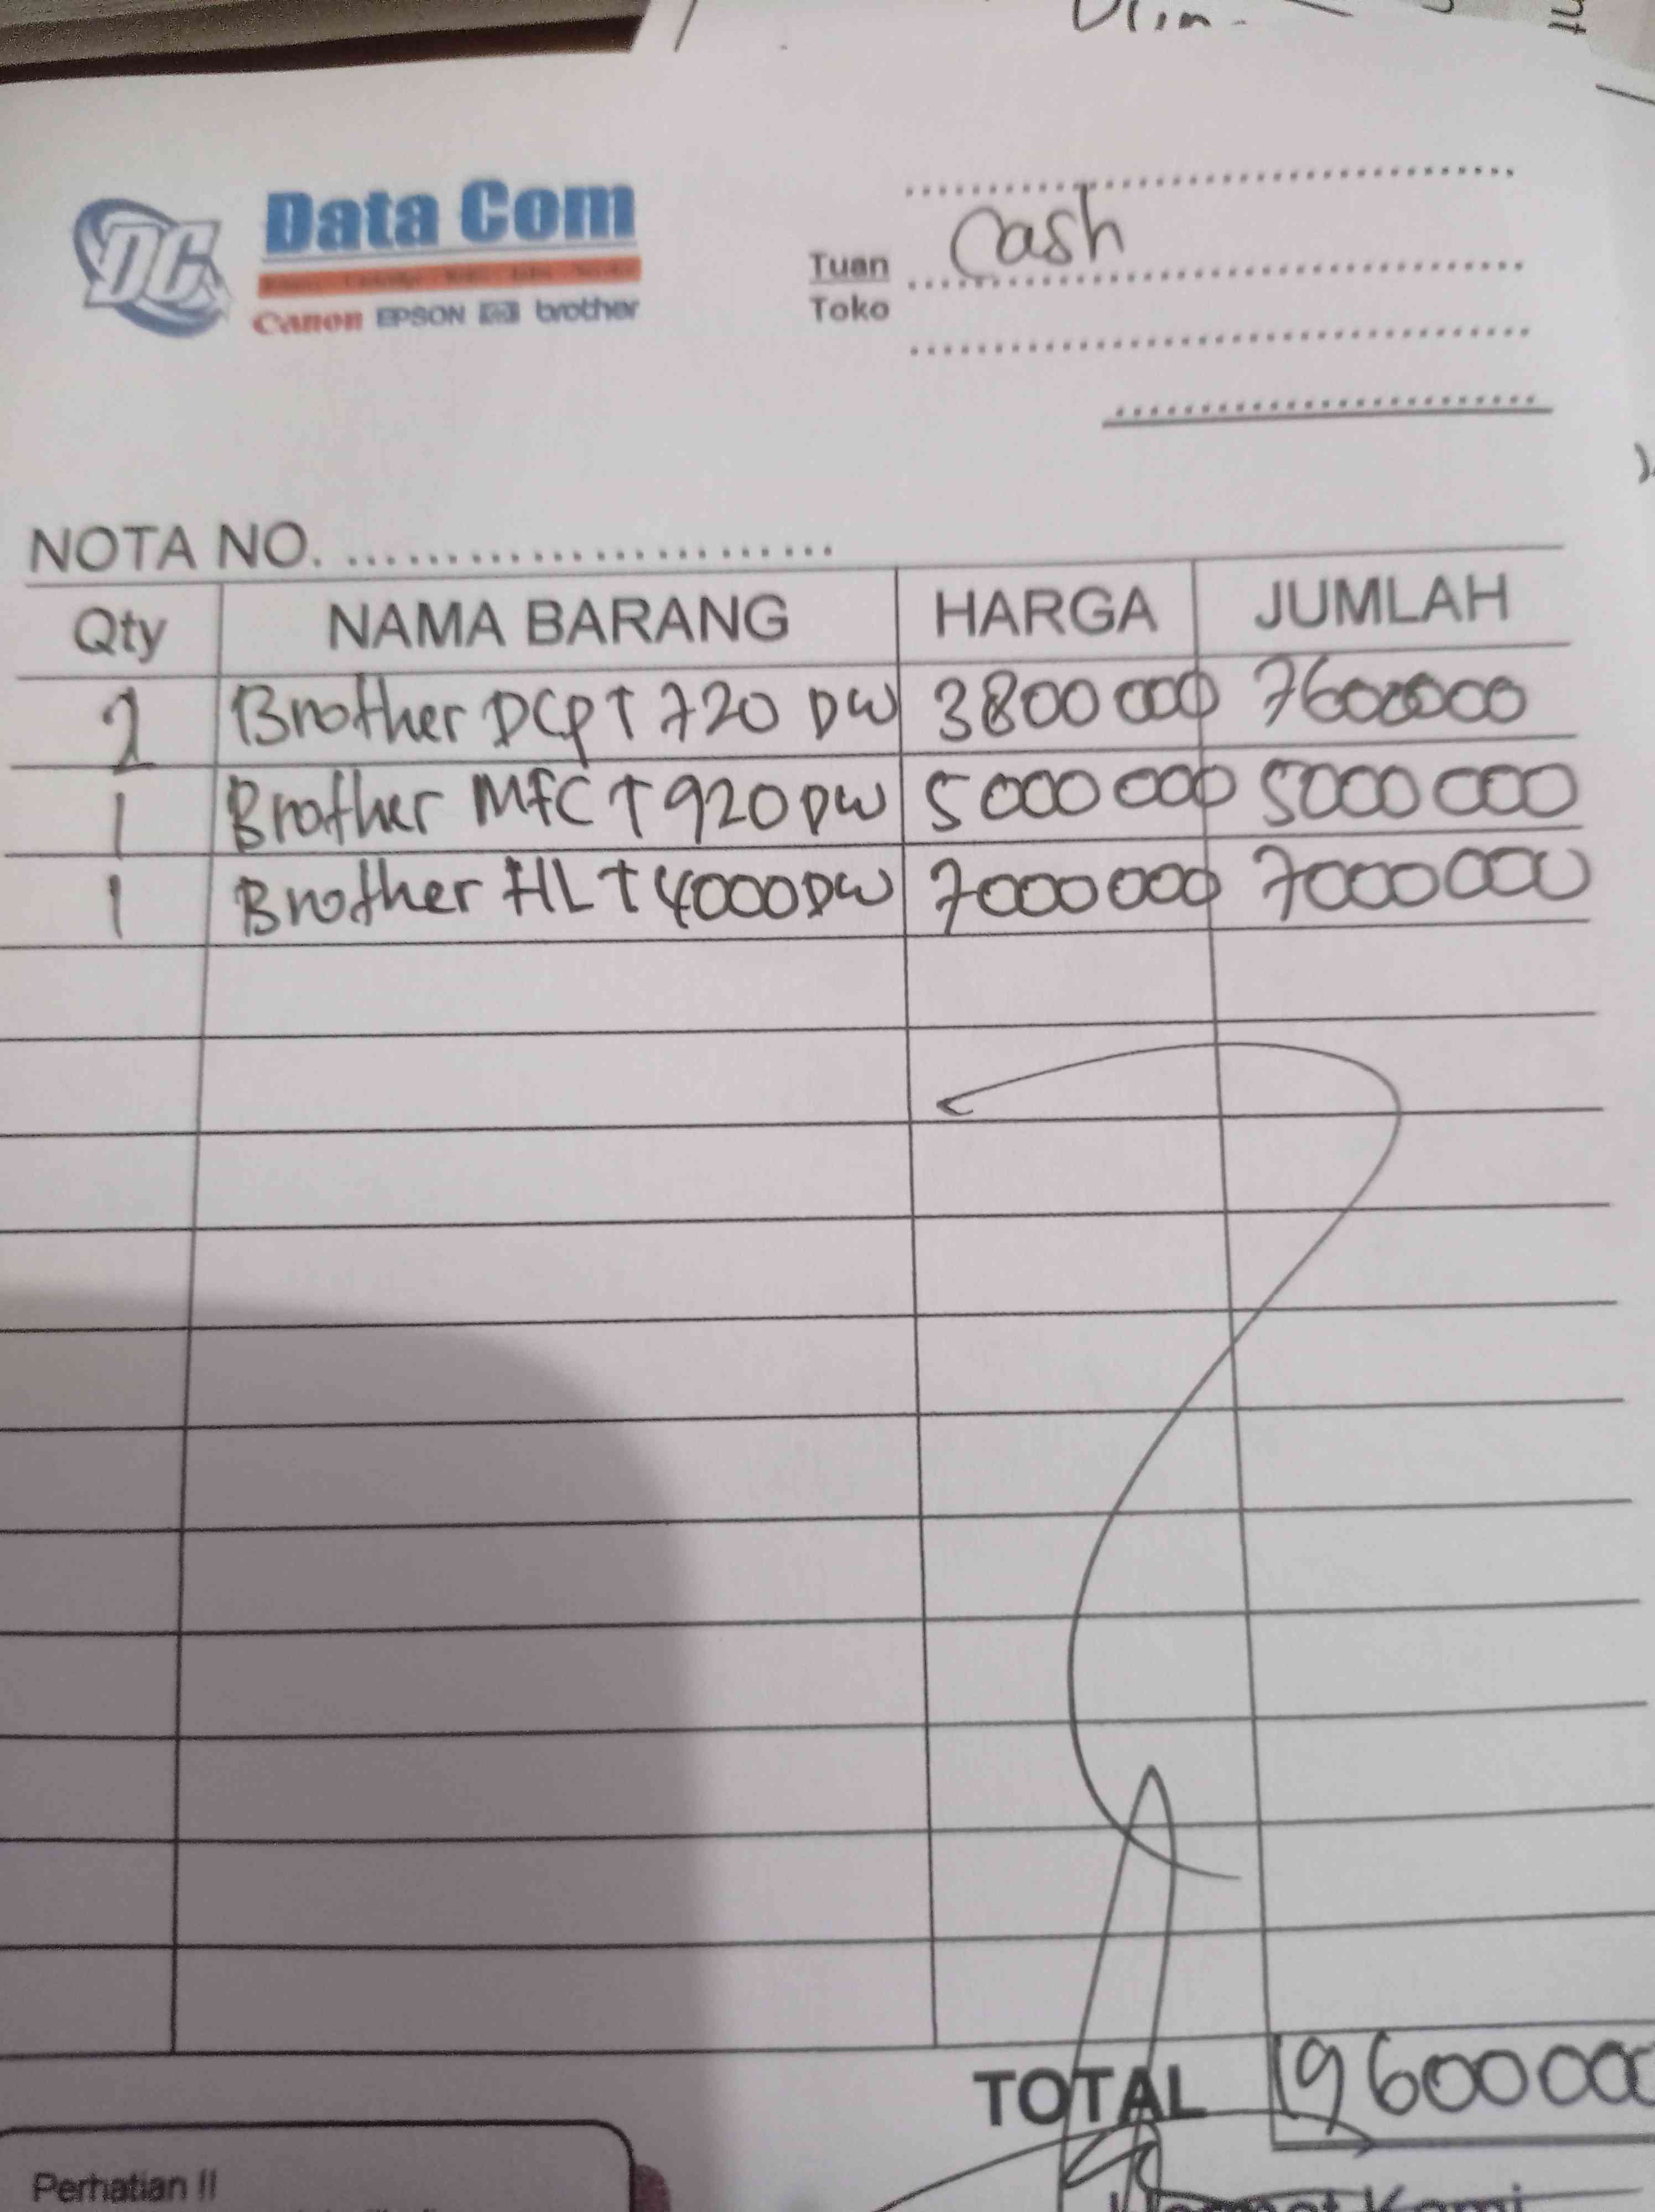 Data Com
Canon EPSON hp brother
Cash
Tuan
Toko
NOTA NO. ........................
Qty NAMA BARANG HARGA JUMLAH
2 Brother DCP T 720 DW 3800 000 7600000
1 Brother MFC T 920 DW 5000 000 5000 000
1 Brother HL T 4000DW 7000 000 7000 000
TOTAL 19600 000
Perhatian !!